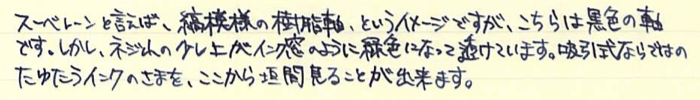 スーベレーンと言えば、縞模様の樹脂軸、というイメージですが、こちらは黒色の軸
です。しかし、ネジ山の少し上がインク窓のように緑色になって透けています。吸引式ならではの
たゆたうインクのさまを、ここから垣間見ることが出来ます。